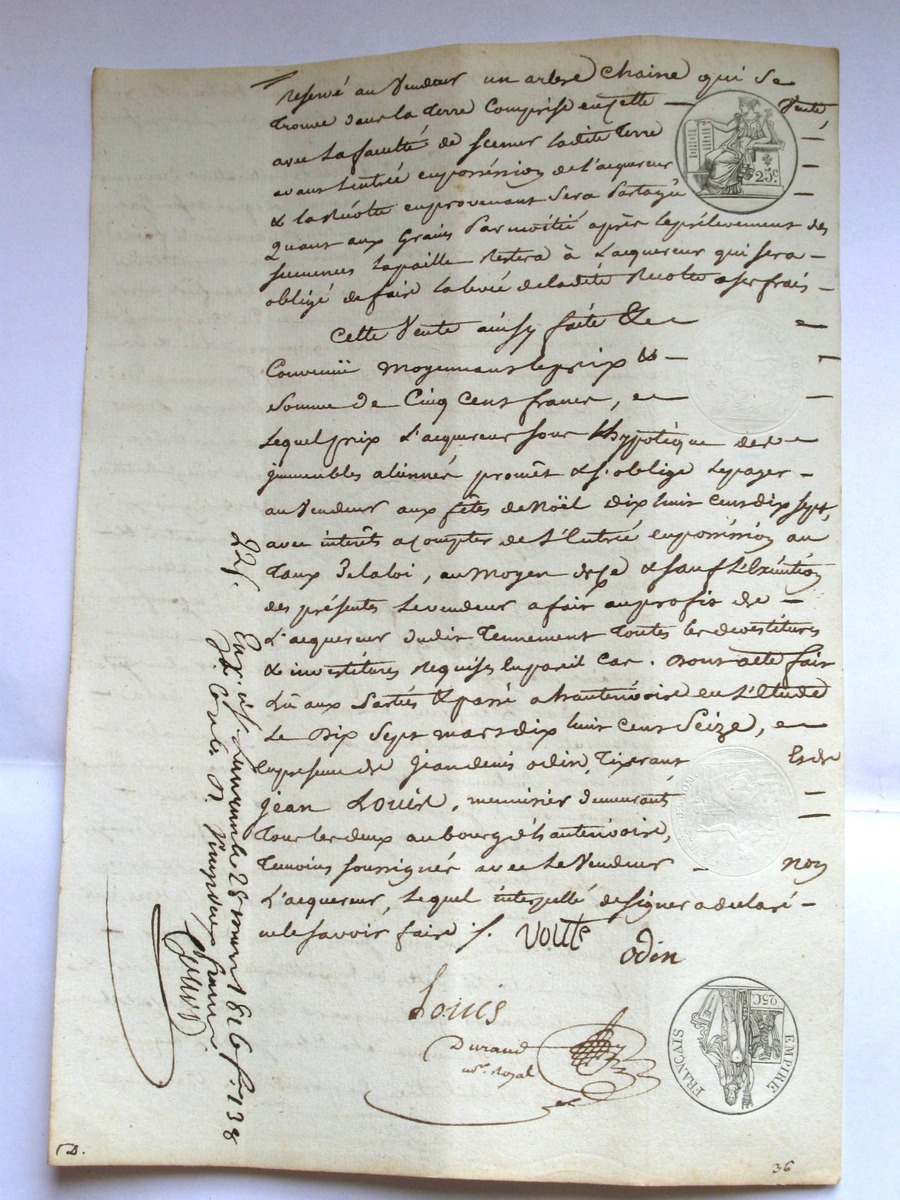 reservé au Vendeur un arbre Chaine qui se
trouve dans la terre comprise en cette Vente,
avec La faculté de semer ladite Terre
avant Lentrée en possession de L'acquereur
& la Récolte en provenant Sera Partagée
Quant aux Grains Par moitié après le prélevement des
semences La paille Restera à L'acquereur qui sera
obligé de faire La levée de ladite Recolte a ses frais
Cette Vente ainsy faite &
Convenüe moyennant le prix &
Somme de Cinq Cent francs,
Lequel prix L'acquereur sous L'hypotèque des
jmmeubles alienné promêt & s'oblige de payer
au Vendeur aux fêtes de Noël dix huit cent dix sept,
avec interêts a compter de L'Entrée en possession au
Taux de la loi, au Moyen de ce & sauf L'Exécution
des présentes Le vendeur a fait au profit de
L'acquereur dudit Tennement Toutes les devestitures
& investitures Requises en pareil cas. Dont acte fait
Lû aux Parties & passé a hauterivoire en L'Etude
Le Dix Sept mars dix huit cent Seize, en
la presence de jean denis odin, Tixerant Et de
jean Louis, meunier demeurant
Tous les deux au bourg d'hauterivoire,
Temoins soussignés avec Le Vendeur non
L'acquereur, Lequel interpellé de signer a declaré
ne le savoir faire ./. Voute
odin
Louis
Durand
no.re Royal
28 mars 1816 f. 138
25c.
EMPIRE FRANÇAIS
25C
D.
36